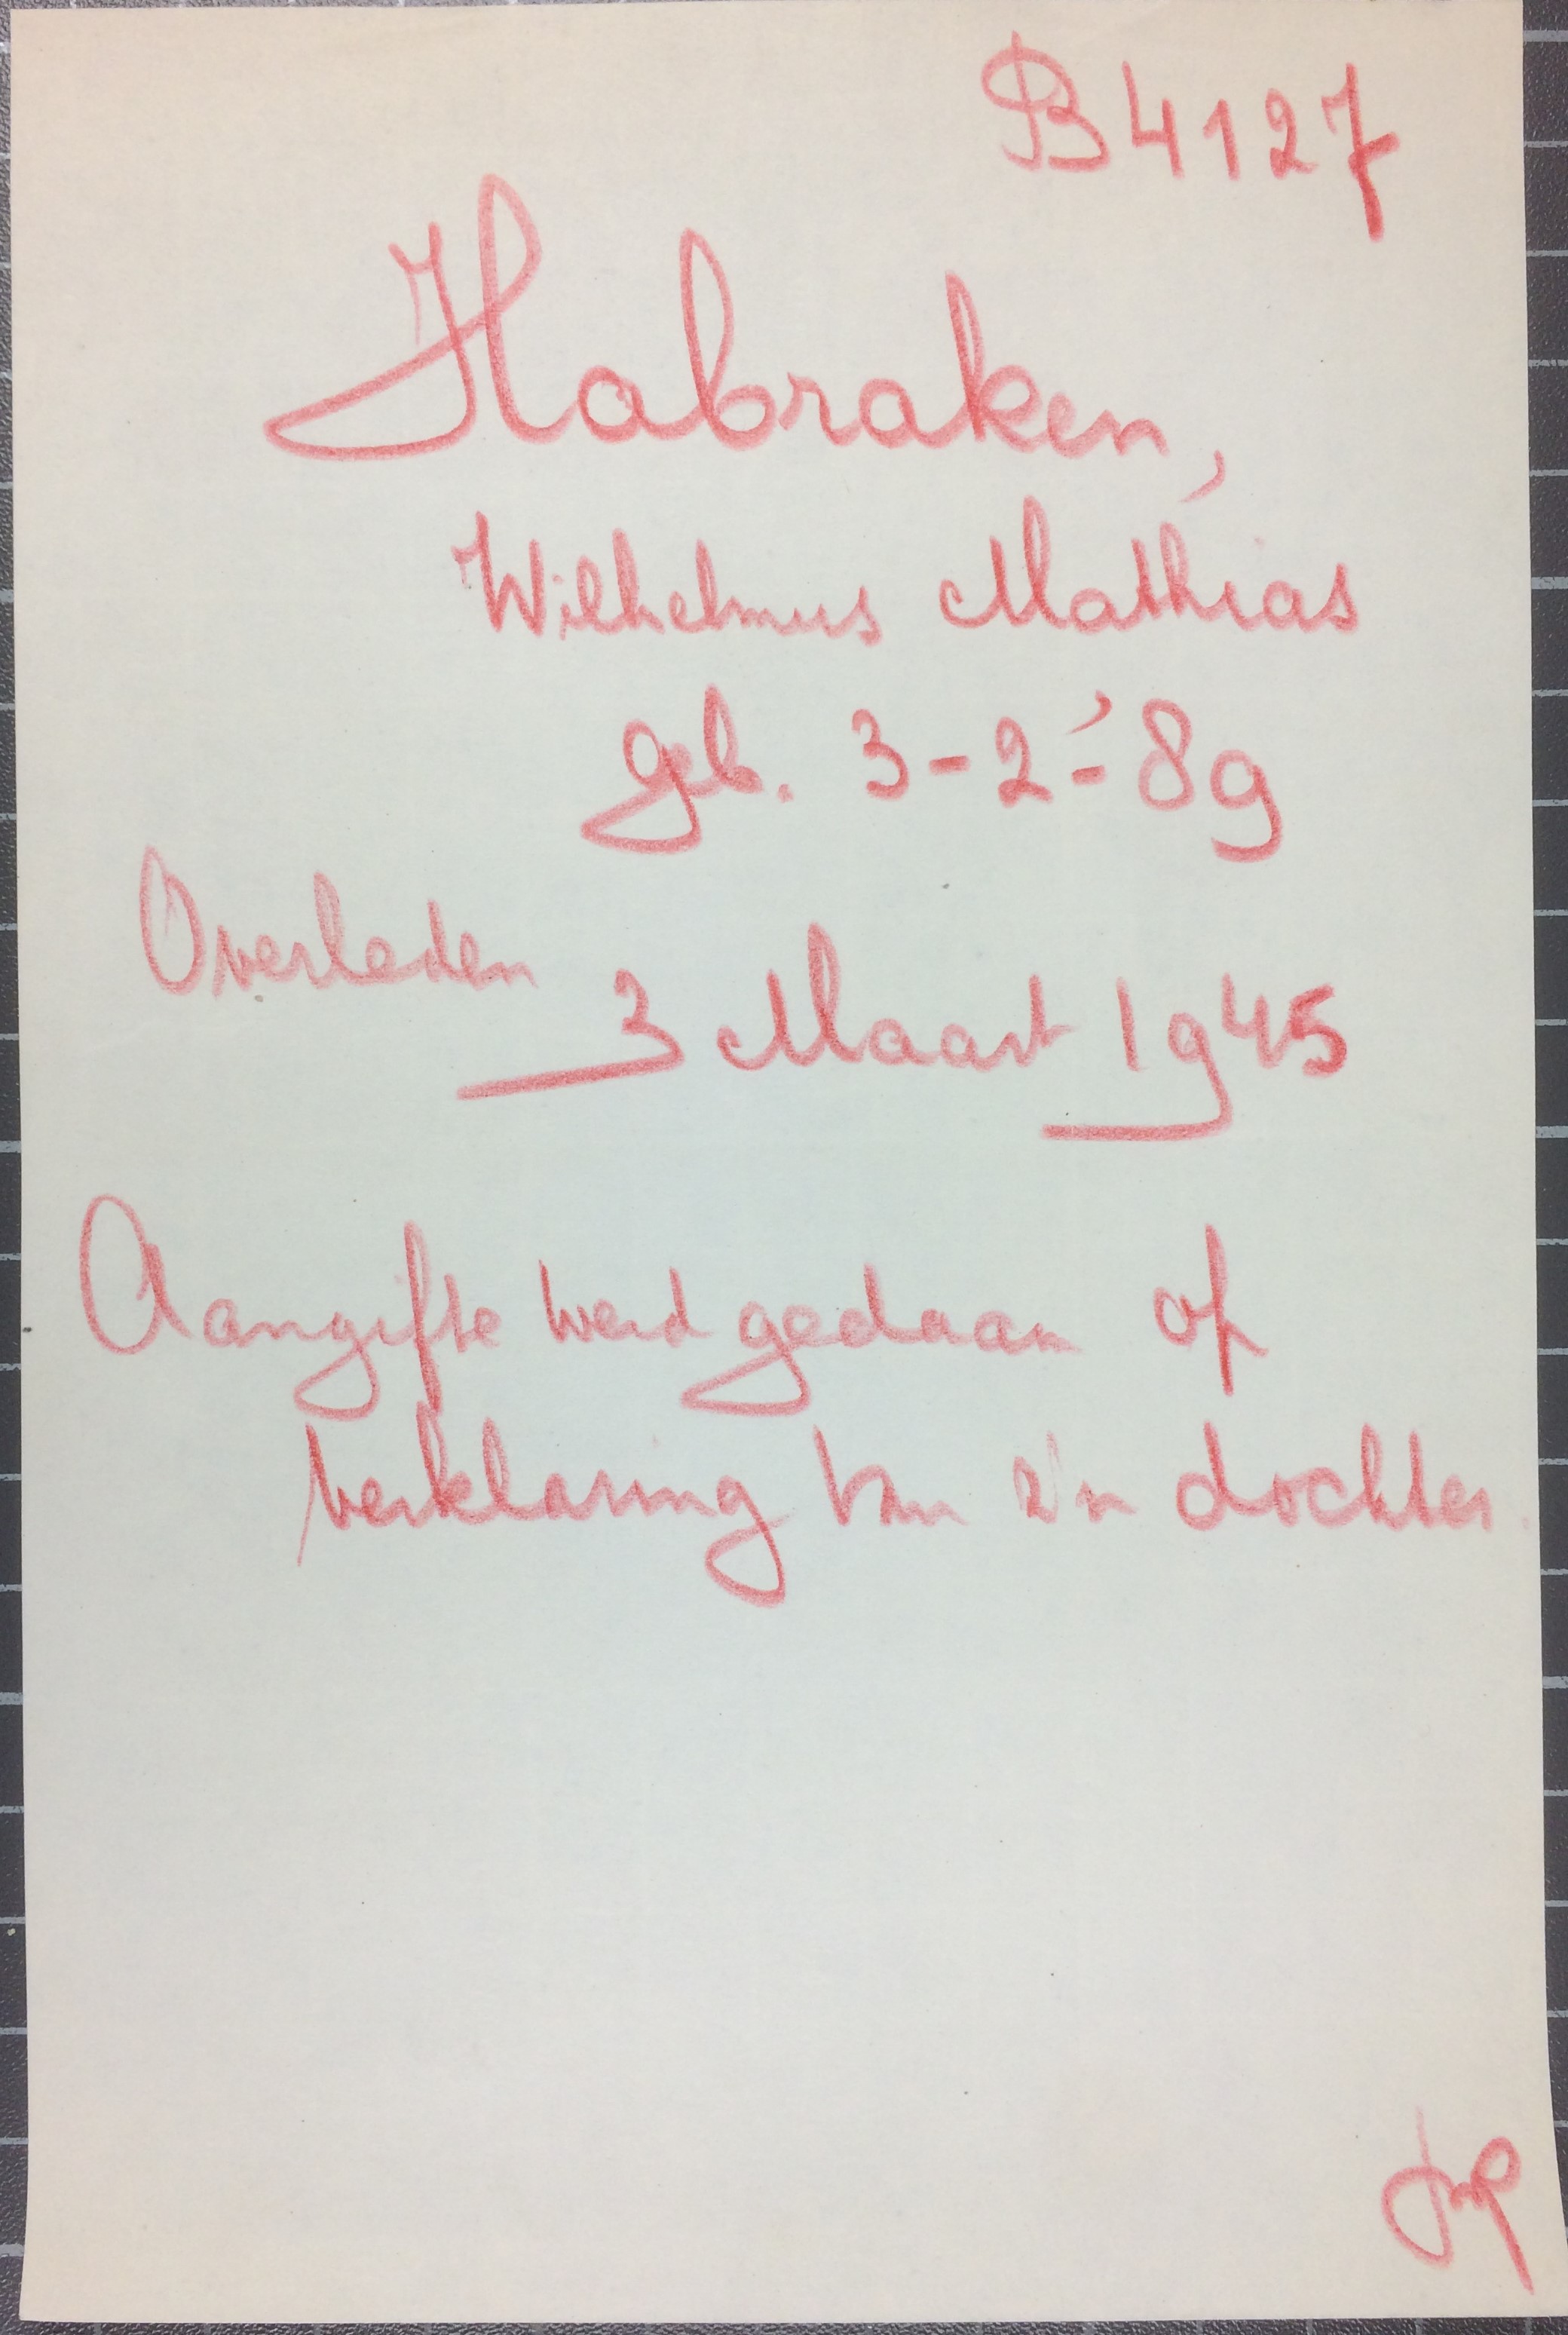 B 4127
Habraken,
Wilhelmus Mathias
geb. 3-2-'89
Overleden
3 Maart 1945
Aangifte werd gedaan op
verklaring van z'n dochter.